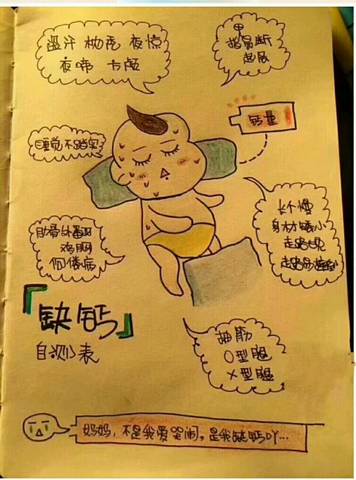 盗汗 枕秃 夜惊
夜啼 颅
甲
易断
钙量
睡觉不踏实
长个慢
身材矮小
走路晚
走路易
肋骨外翻
鸡胸
佝偻病
「缺钙」
自测小表
抽筋
O型腿
X型腿
妈妈，不是我爱哭闹。是我缺钙吖…